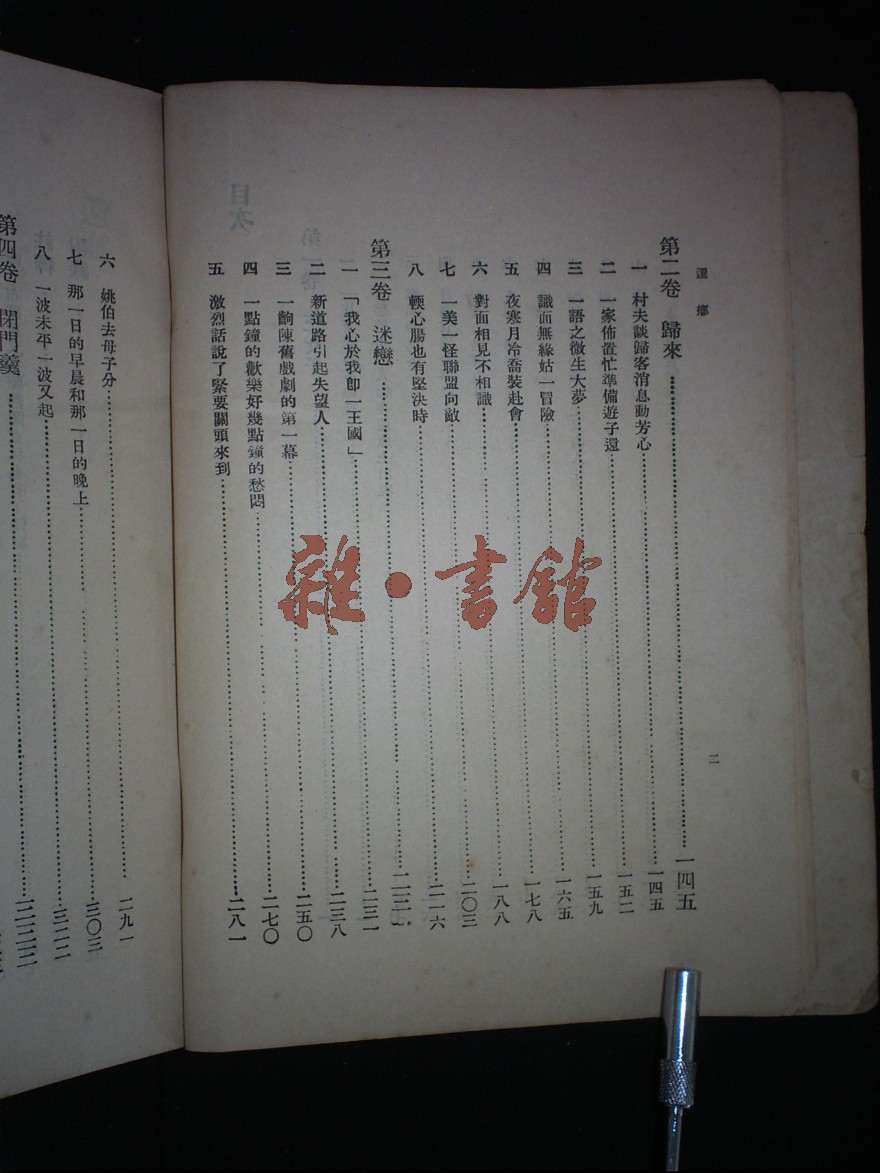 還鄉
第二卷 歸來……一四五
一 村夫談歸客消息動芳心……一四五
二 一家佈置忙準備遊子還……一五二
三 一語之微生大夢……一五九
四 識面無緣姑一冒險……一六五
五 夜寒月冷喬裝赴會……一七八
六 對面相見不相識……一八八
七 一美一怪聯盟向敵……二〇三
八 輭心腸也有堅決時……二一六
第三卷 迷戀……二三一
一 「我心於我即一王國」……二三一
二 新道路引起失望人……二三八
三 一齣陳舊戲劇的第一幕……二五〇
四 一點鐘的歡樂好幾點鐘的愁悶……二七〇
五 激烈話說了緊要關頭來到……二八一
二
六 姚伯去母子分……二九一
七 那一日的早晨和那一日的晚上……三〇三
八 一波未平一波又起……三二二
第四卷 閉門羹
雜·書館